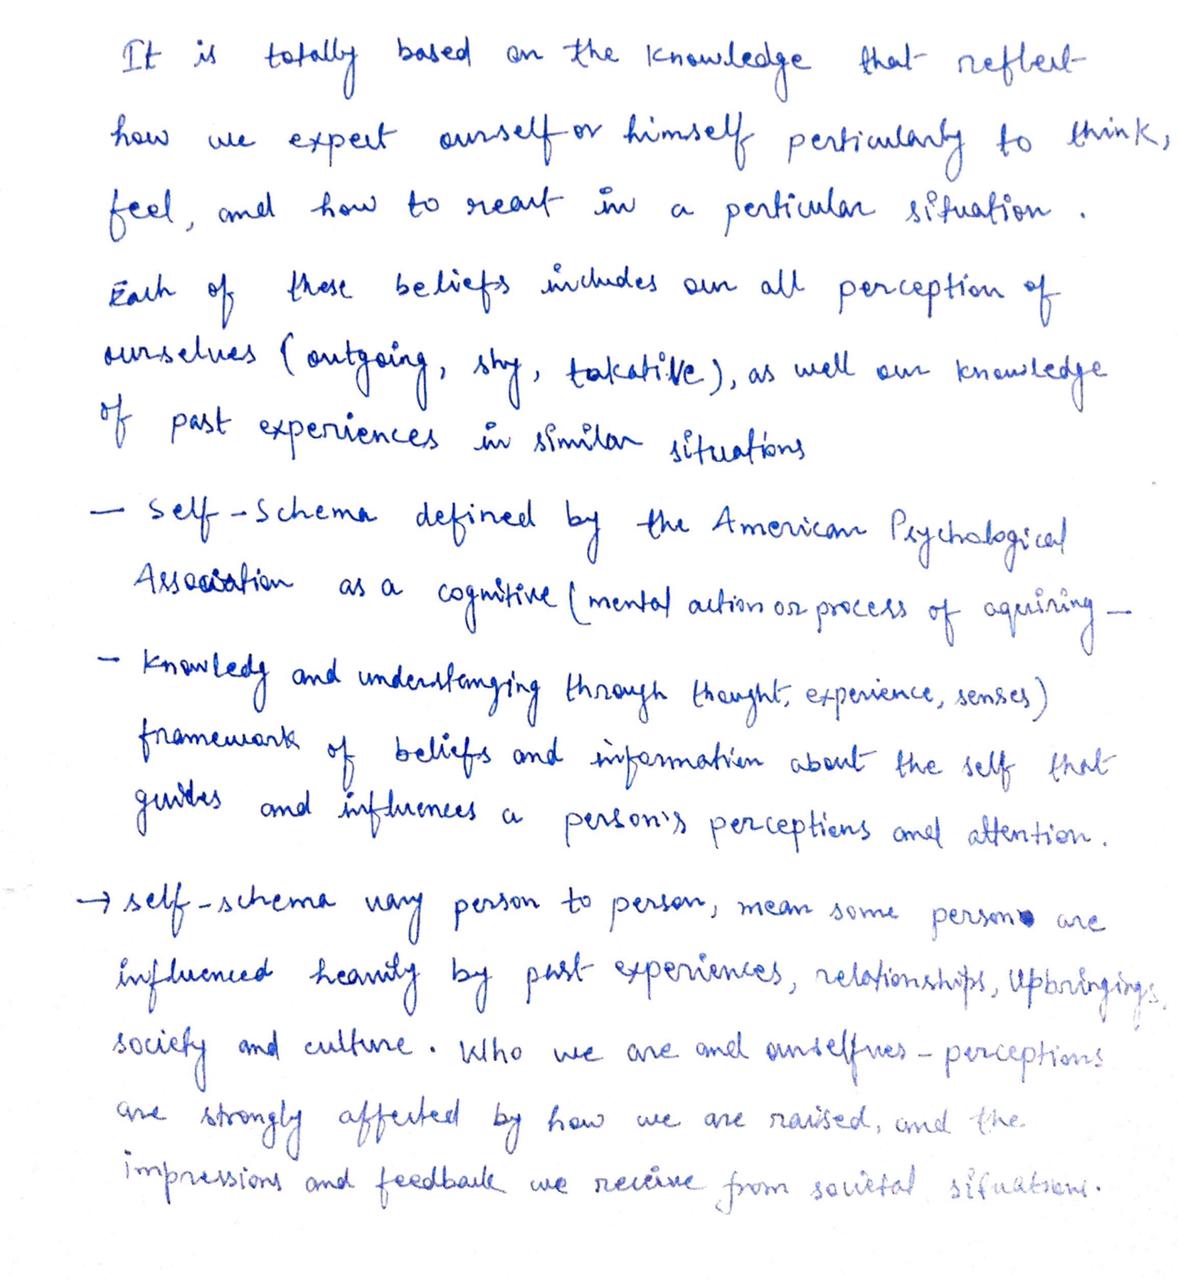 It is totally based on the knowledge that reflect
how we expect ourself or himself perticularly to think,
feel, and how to react in a perticular situation .
Each of these beliefs includes our all perception of
ourselves (outgoing, shy, takative), as well our knowledge
of past experiences in similar situations
— Self-Schema defined by the American Psychological
Association as a cognitive (mental action or process of aquiring —
- knowledg and understanging through thought, experience, senses)
framework of beliefs and information about the self that
guides and influences a person's perceptions and attention.
→ self-schema vary person to person, mean some person are
influenced heavily by past experiences, relationships, Upbringings,
society and culture. Who we are and ourselfves - perceptions
are strongly affected by how we are raised, and the
impressions and feedback we receive from societal situations.